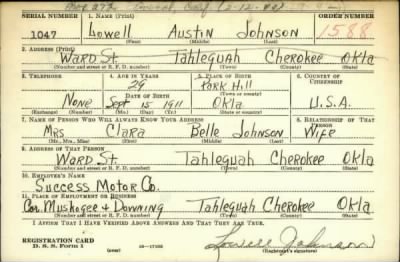 Box 273 Calif (2-12-42)
SERIAL NUMBER 1. NAME (Print) ORDER NUMBER
1047 Lowell Austin Johnson 1588
(First) (Middle) (Last)
2. ADDRESS (Print)
Ward St. Tahlequah Cherokee Okla
(Number and street or R. F. D. number) (Town) (County) (State)
3. TELEPHONE 4. AGE IN YEARS 5. PLACE OF BIRTH 6. COUNTRY OF CITIZENSHIP
28 Park Hill
DATE OF BIRTH (Town or county)
None Sept 15 1911 Okla U.S.A.
(Exchange) (Number) (Mo.) (Day) (Yr.) (State or country)
7. NAME OF PERSON WHO WILL ALWAYS KNOW YOUR ADDRESS 8. RELATIONSHIP OF THAT PERSON
Mrs Clara Belle Johnson Wife
(Mr., Mrs., Miss) (First) (Middle) (Last)
9. ADDRESS OF THAT PERSON
Ward St. Tahlequah Cherokee Okla
(Number and street or R. F. D. number) (Town) (County) (State)
10. EMPLOYER'S NAME
Success Motor Co.
11. PLACE OF EMPLOYMENT OR BUSINESS
Cor. Muskogee & Downing Tahlequah Cherokee Okla
(Number and street or R. F. D. number) (Town) (County) (State)
I AFFIRM THAT I HAVE VERIFIED ABOVE ANSWERS AND THAT THEY ARE TRUE.
REGISTRATION CARD
D. S. S. Form 1 Lowell Johnson
(Registrant's signature)